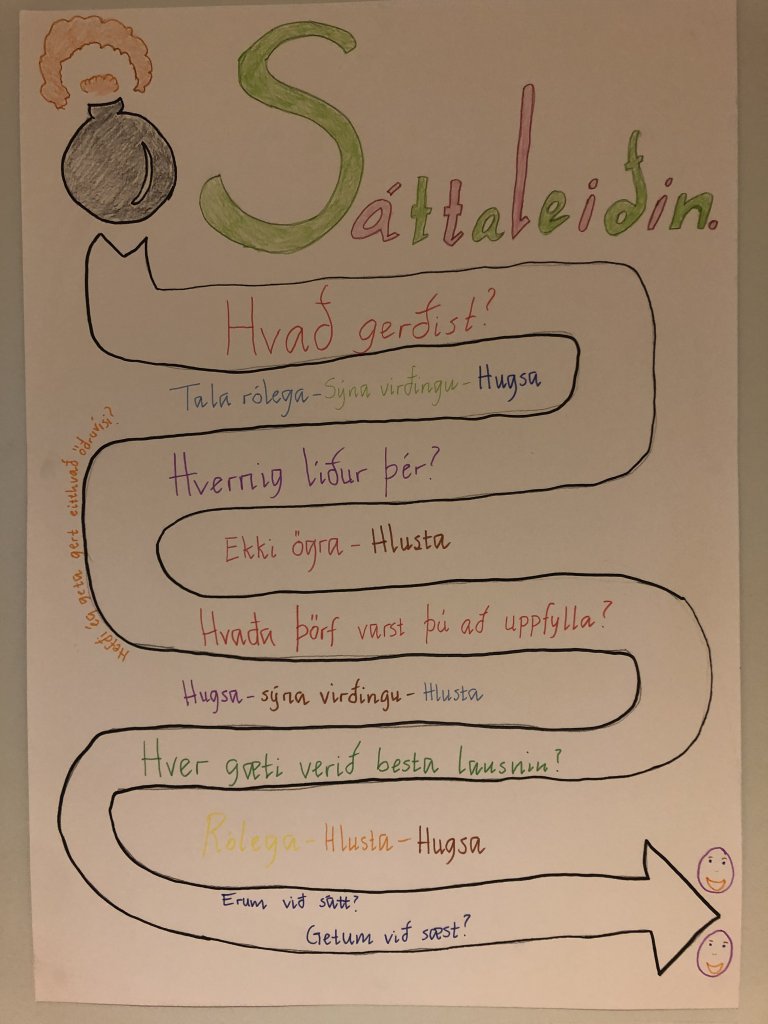 Sáttaleiðin.
Hvað gerðist?
Tala rólega - Sýna virðingu - Hugsa
Hvernig líður þér?
Ekki ögra - Hlusta
Hefði ég geta gert eitthvað öðruvísi?
Hvaða þörf varst þú að uppfylla?
Hugsa - sýna virðingu - Hlusta
Hver gæti verið besta lausnin?
Rólega - Hlusta - Hugsa
Erum við sátt?
Getum við sæst?